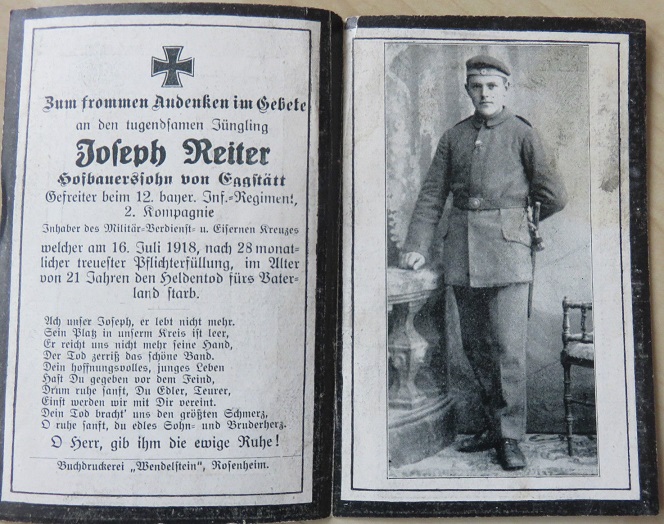 Zum frommen Andenken im Gebete
an den tugendsamen Jüngling
Joseph Reiter
Hofbauerssohn von Eggstätt
Gefreiter beim 12. bayer. Inf.-Regiment,
2. Kompagnie
Inhaber des Militär-Verdienst- u. Eisernen Kreuzes
welcher am 16. Juli 1918, nach 28 monat-
licher treuester Pflichterfüllung, im Alter
von 21 Jahren den Heldentod fürs Vater-
land starb.
Ach unser Joseph, er lebt nicht mehr.
Sein Platz in unserm Kreis ist leer,
Er reicht uns nicht mehr seine Hand,
Der Tod zerriß das schöne Band.
Dein hoffnungsvolles, junges Leben
Hast Du gegeben vor dem Feind,
Drum ruhe sanft, Du Edler, Teurer,
Einst werden wir mit Dir vereint.
Dein Tod bracht' uns den größten Schmerz,
O ruhe sanft, du edles Sohn- und Bruderherz.
O Herr, gib ihm die ewige Ruhe!
Buchdruckerei „Wendelstein", Rosenheim.